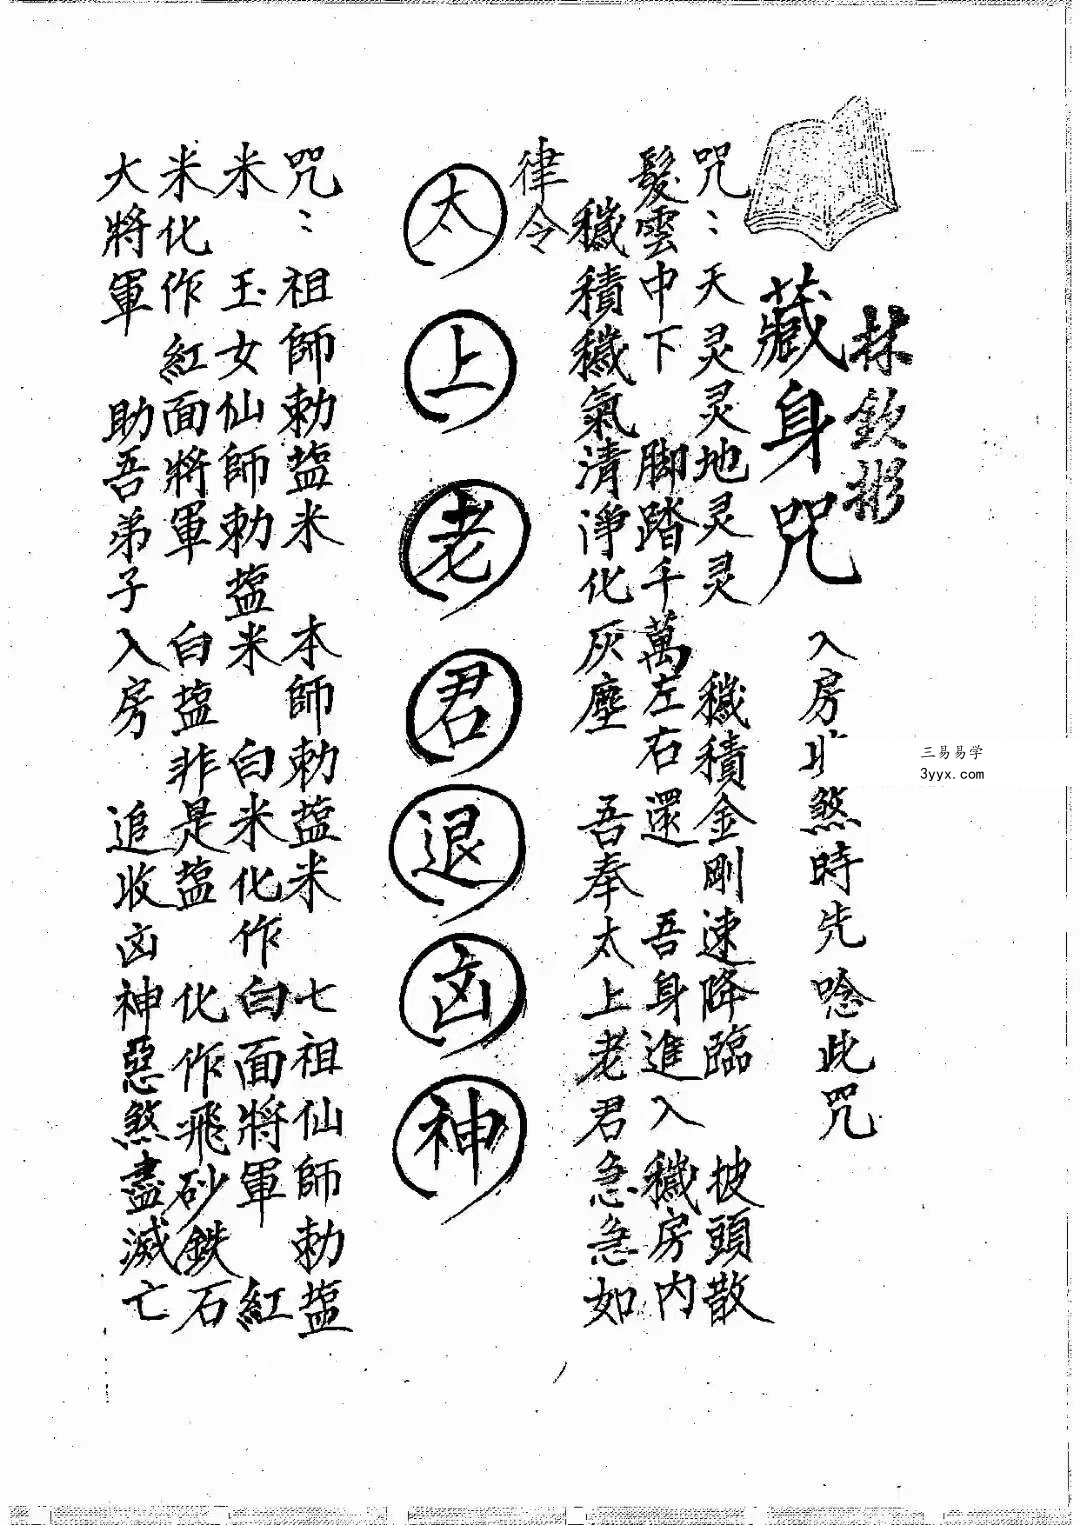 林欽彬
藏身咒
入房 煞時先唸此咒
咒：天灵灵地灵灵 穢積金剛速降臨 披頭散
髮雲中下 脚踏千萬左右還 吾身進入穢房内
穢積穢氣清淨化灰塵 吾奉太上老君急急如
律令
太上老君退凶神
咒：祖師勅塩米 本師勅塩米 七祖仙師勅塩
米 玉女仙師勅塩米 白米化作白面將軍 紅
米化作紅面將軍 白塩非是塩 化作飛砂鉄石
大將軍 助吾弟子入房 追收凶神惡煞盡滅亡
三易易学
3yyx.com